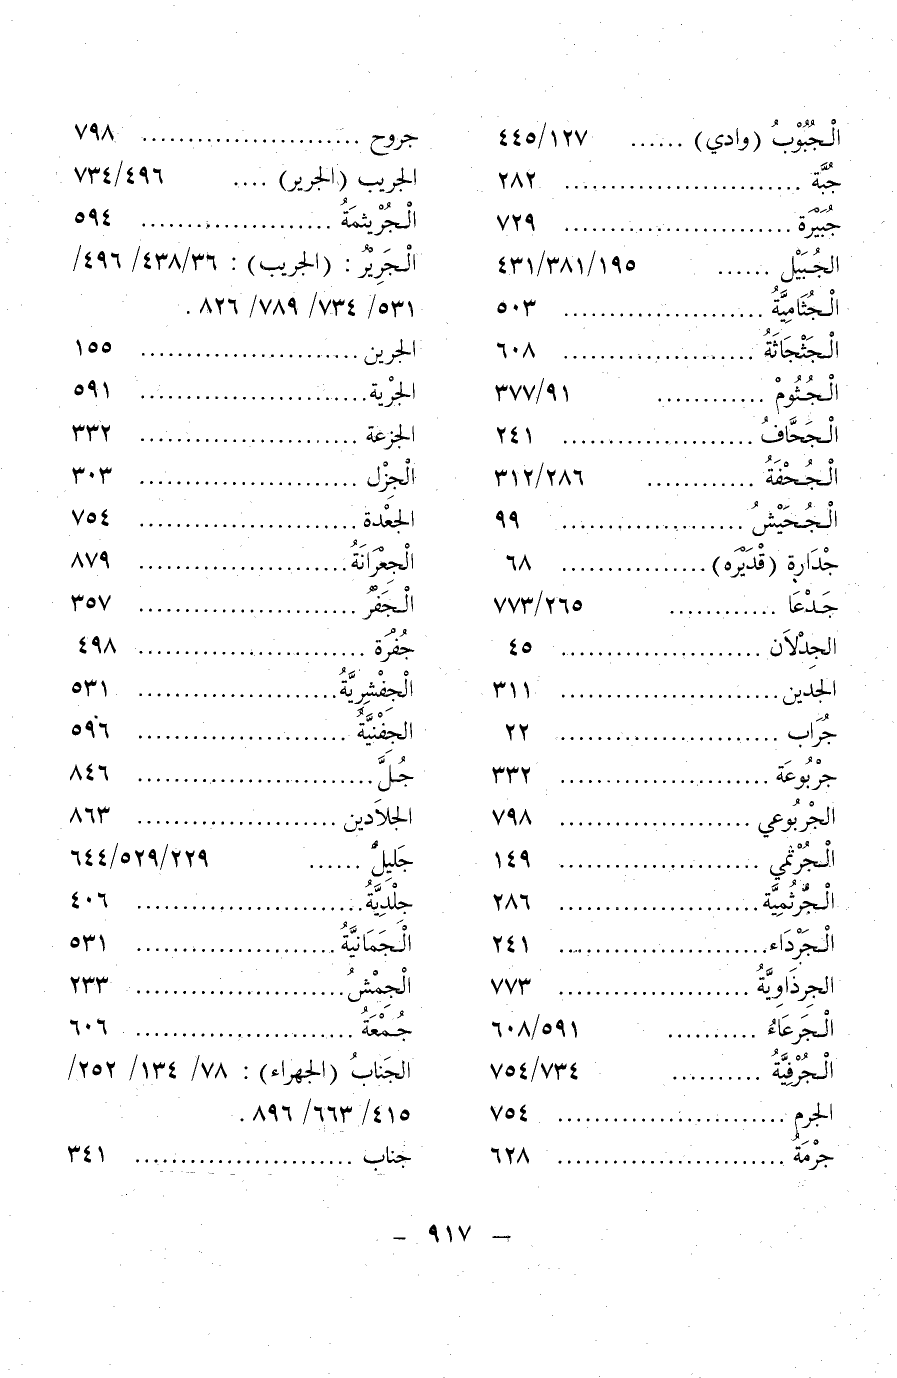 الْجُبُوْبُ (وادي) ...... ٤٤٥/١٢٧
جُبَّة .......................... ٢٨٢
جُبَيْرَة ......................... ٧٢٩
الجُبَيْل ...... ٤٣١/٣٨١/١٩٥
الْجُثَامِيَّةُ ...................... ٥٠٣
الْجَثْجَاثَةُ ..................... ٦٠٨
الْجُثُومْ ............ ٣٧٧/٩١
الْجَحَّافُ ..................... ٢٤١
الْجُحْفَةُ ............ ٣١٢/٢٨٦
الْجُحَيْشُ .................... ٩٩
جْدَارة (قْدَيْرَه) ................ ٦٨
جَدْعَا ............ ٧٧٣/٢٦٥
الجِدْلاَن ...................... ٤٥
الجدين ........................ ٣١١
جُرَاب ........................ ٢٢
جرْبُوعَة ....................... ٣٣٢
الجْربُوعي ..................... ٧٩٨
الْجُرْثمي ...................... ١٤٩
الْجُرْثُمِيَّة ...................... ٢٨٦
الْجَرْدَاء ....................... ٢٤١
الجِرذَاوِيَّةُ ..................... ٧٧٣
الْجَرعَاءُ .......... ٦٠٨/٥٩١
الْجُرْفِيَّةُ .......... ٧٥٤/٧٣٤
الجرم ......................... ٧٥٤
جرْمَةُ ......................... ٦٢٨
جروح ........................ ٧٩٨
الجريب (الجرير) .... ٧٣٤/٤٩٦
الْجُرْيثمَةُ ..................... ٥٩٤
الْجَرِيرُ : (الجريب) : ٤٣٨/٣٦ /٤٩٦/
٥٣١/ ٧٣٤/ ٧٨٩/ ٨٢٦ .
الجرين ........................ ١٥٥
الجرْية ......................... ٥٩١
الجزعة ........................ ٣٣٢
الْجِزْل ........................ ٣٠٣
الجعْدة ........................ ٧٥٤
الْجِعْرَانَةُ ....................... ٨٧٩
الْجَفَرُ ........................ ٣٥٧
جُفْرَة ......................... ٤٩٨
الْجِفْشرِيَّةُ ...................... ٥٣١
الجِفْنِيَّةُ ....................... ٥٩٦
جُلَّ ......................... ٨٤٦
الجلاَدين ...................... ٨٦٣
جَليلٌ ...... ٦٤٤/٥٢٩/٢٢٩
جلْدِيَّةُ ......................... ٤٠٦
الْجَمَانِيَّةُ ...................... ٥٣١
الْجِمْشُ ....................... ٢٣٣
جُمْعَةُ ........................ ٦٠٦
الجَنابُ (الجهراء) : ٧٨/ ١٣٤/ ٢٥٢/
٤١٥/ ٦٦٣/ ٨٩٦ .
جناب ........................ ٣٤١
— ٩١٧ —